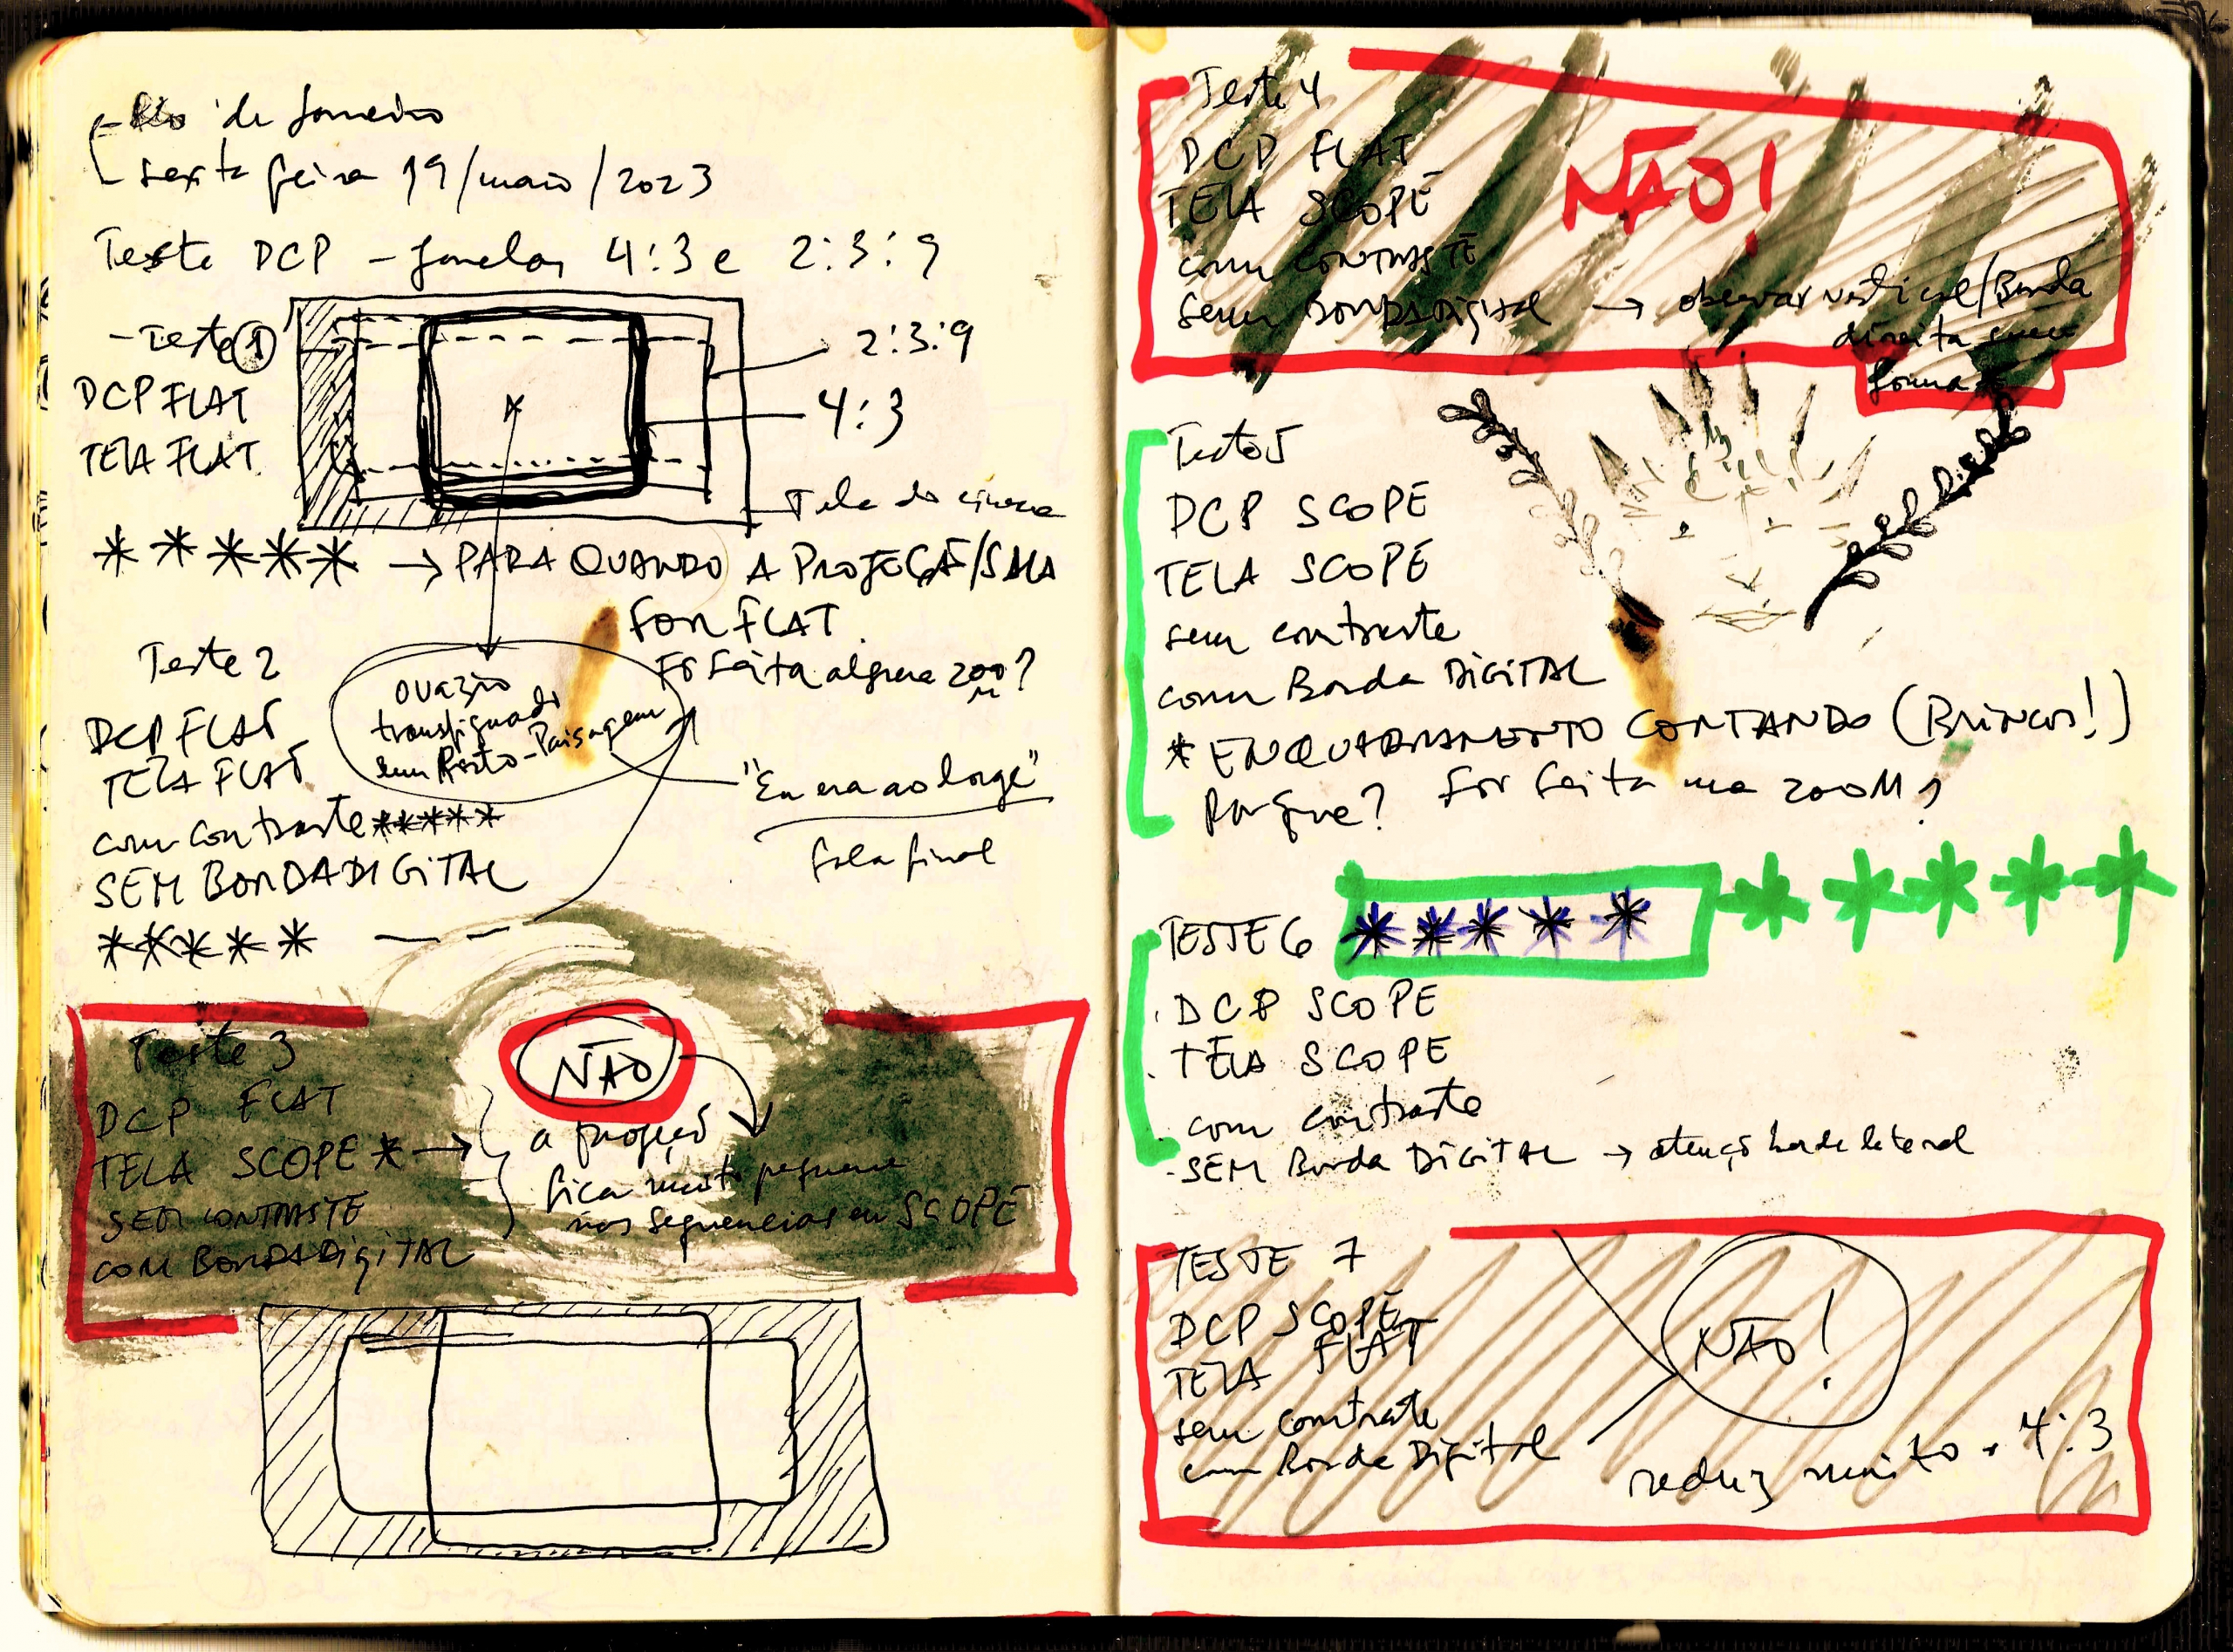 - Rio de Janeiro
- sexta feira 19/maio/2023
Teste DCP - Janelas 4:3 e 2:3:9
- Teste 1
DCP FLAT
TELA FLAT
2:3:9
4:3
Tela do cinema
***** → PARA QUANDO A PROJEÇÃO/SALA
FOR FLAT
Foi feita alguma zoom?
Teste 2
DCP FLAT
TELA FLAT
com contraste *****
SEM BORDA DIGITAL
*****
O vazio
transfigurado
sem Rosto-Paisagem
"Eu era ao longe"
fala final
Teste 3
DCP FLAT
TELA SCOPE * →
SEM CONTRASTE
COM BORDA DIGITAL
NÃO
a projeção
fica muito pequena
nas sequencias em SCOPE
Teste 4
DCP FLAT
TELA SCOPE
com CONTRASTE
Sem BORDA DIGITAL → observar vertical/Borda
direita
NÃO!
Teste 5
DCP SCOPE
TELA SCOPE
sem contraste
com Borda DIGITAL
* ENQUADRAMENTO CORTANDO (BRINCOS!)
Porque? Foi feita uma zoom?
TESTE 6 ***** *****
DCP SCOPE
TELA SCOPE
com contraste
- SEM Borda DIGITAL → atenção borda lateral
TESTE 7
DCP SCOPE
TELA FLAT
sem contraste
com Borda Digital
NÃO!
reduz muito o 4:3